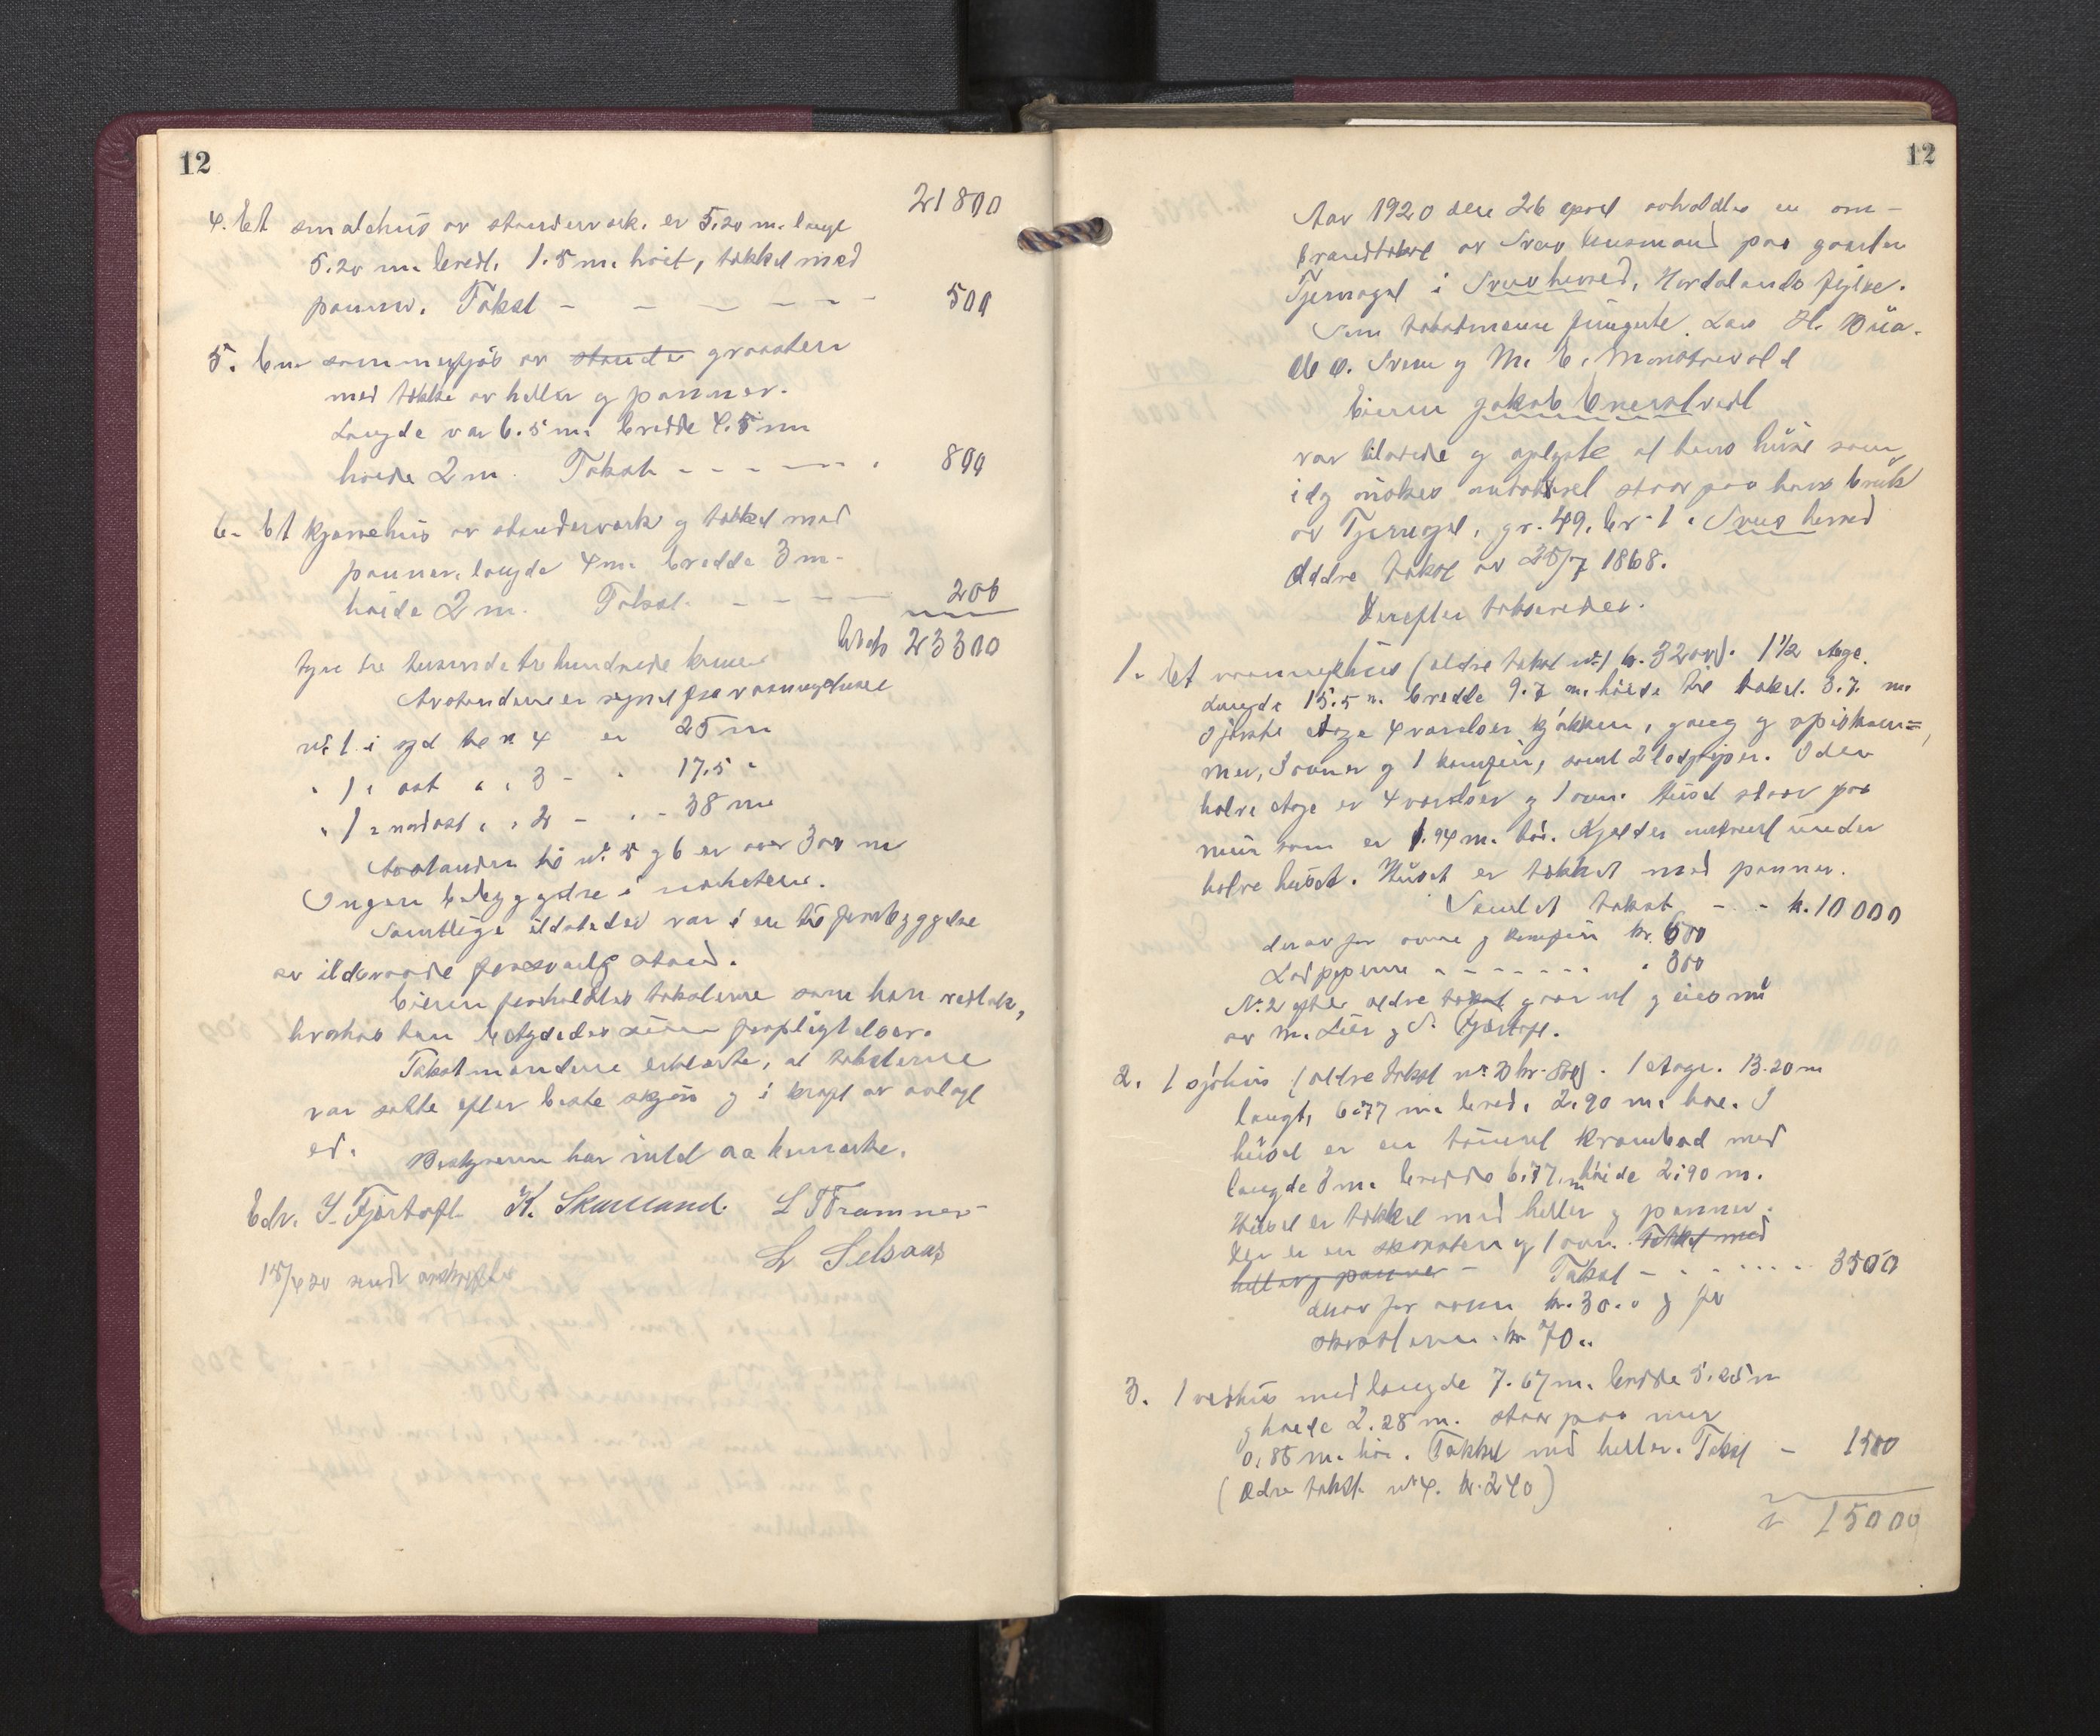 12
21800
4. Et smalehus av stenderverk. er 5.20 m. langt
5.20 m. bredt. 1.5 m. høit, tækket med
panner. Takst - - - - - - 500
5. En sommerfjøs av stender graasten
med tække av heller og panner.
Længde var 6.5 m. bredde 4.5 m
høide 2 m. Takst - - - - - 800
6. Et kjørnehus av stenderverk og tækket med
panner. længde 4 m. bredde 3 m.
høide 2 m. Takst. - - - - 200
kr 23300
tyve tre tusinde tre hundrede kroner
Avstandene er regnet fra vaaningshuset
nr. 1 i syd til nr 4 er 25 m
" 1 " øst " " 3 - " 17.5 "
" 1 " nordøst " " 2 - " - 38 m
Avstanden til nr. 5 og 6 er over 300 m
Ingen bebyggelse i nærheten.
Samtlige ildsteder var i en til forebyggelse
av ildsvaade forsvarlig stand.
Eieren foreholdtes taksterne som han vedtok,
hvorhos han betydedes sine forpligtelser.
Takstmændene erklærte, at taksterne
var satte efter beste skjøn og i kraft av avlagt
ed. Bestyreren har intet aa bemerke.
Edv. J. Fjørtoft K. Skarsland. L Tramner
L Selsaas
15/4 20 sendt avskrifter
12
Aar 1920 den 26 april avholdtes en om-
brandtakst av Sveio lensmand paa gaarden
Tjernagel i Sveio herred, Hordalands fylke.
Som takstmænn fungerte Lars H. Bua.
O. Sveen og M. E. Mønstrevold
Eieren Jakob Enerstvedt
var tilstede og oplyste at hans huse som
idag ønskes omtaksert staar paa hans bruk
av Tjernagel, gr. 49. br. 1 i Sveio herred
Ældre takst av 25/7 1868.
Derefter takseredes.
1. Et vaaningshus (ældre takst nr. 1 kr. 3200). 1 1/2 etage.
Længde 15.5 m. bredde 9.7 m. høide til taket. 3.7. m.
I første etage 4 værelser kjøkken, gang og spiskam=
mer, 3 ovner og 1 komfur, samt 2 lodpiper. I den
halve etage er 4 værelser og 1 ovn. Huset staar paa
mur som er 1.94 m. høi. Kjelder indredt under
halve huset. Huset er tækket med panner.
Samlet takst - - kr. 10 000
derav for ovne og komfur kr. 600
Lodpiperne " - - - - - " 300
Nr. 2 efter ældre takst gaar ut og eies nu
av M. Lier og S. Fjørtoft.
2. 1 sjøhus (ældre takst nr 3 kr. 800). 1 etage. 13.20 m
langt, 6.77 m. bred. 2.90 m. høi. I
huset er en tømret krambod med
længde 8 m. bredde 6.77 m høide 2.90 m.
Huset er tækket med heller og panner.
Der er en skorsten og 1 ovn. Tækket med
heller og panner - Takst - - - - - - 3500
derav for ovnen kr. 30.. og for
skorstenen kr 70..
3. 1 vedhus med længde 7.67 m. bredde 5.25 m
og høide 2.28 m. staar paa mur
0.85 m. høi. Tækket med heller. Takst - 1500
(Ældre takst nr 4. kr. 240)
kr 15000